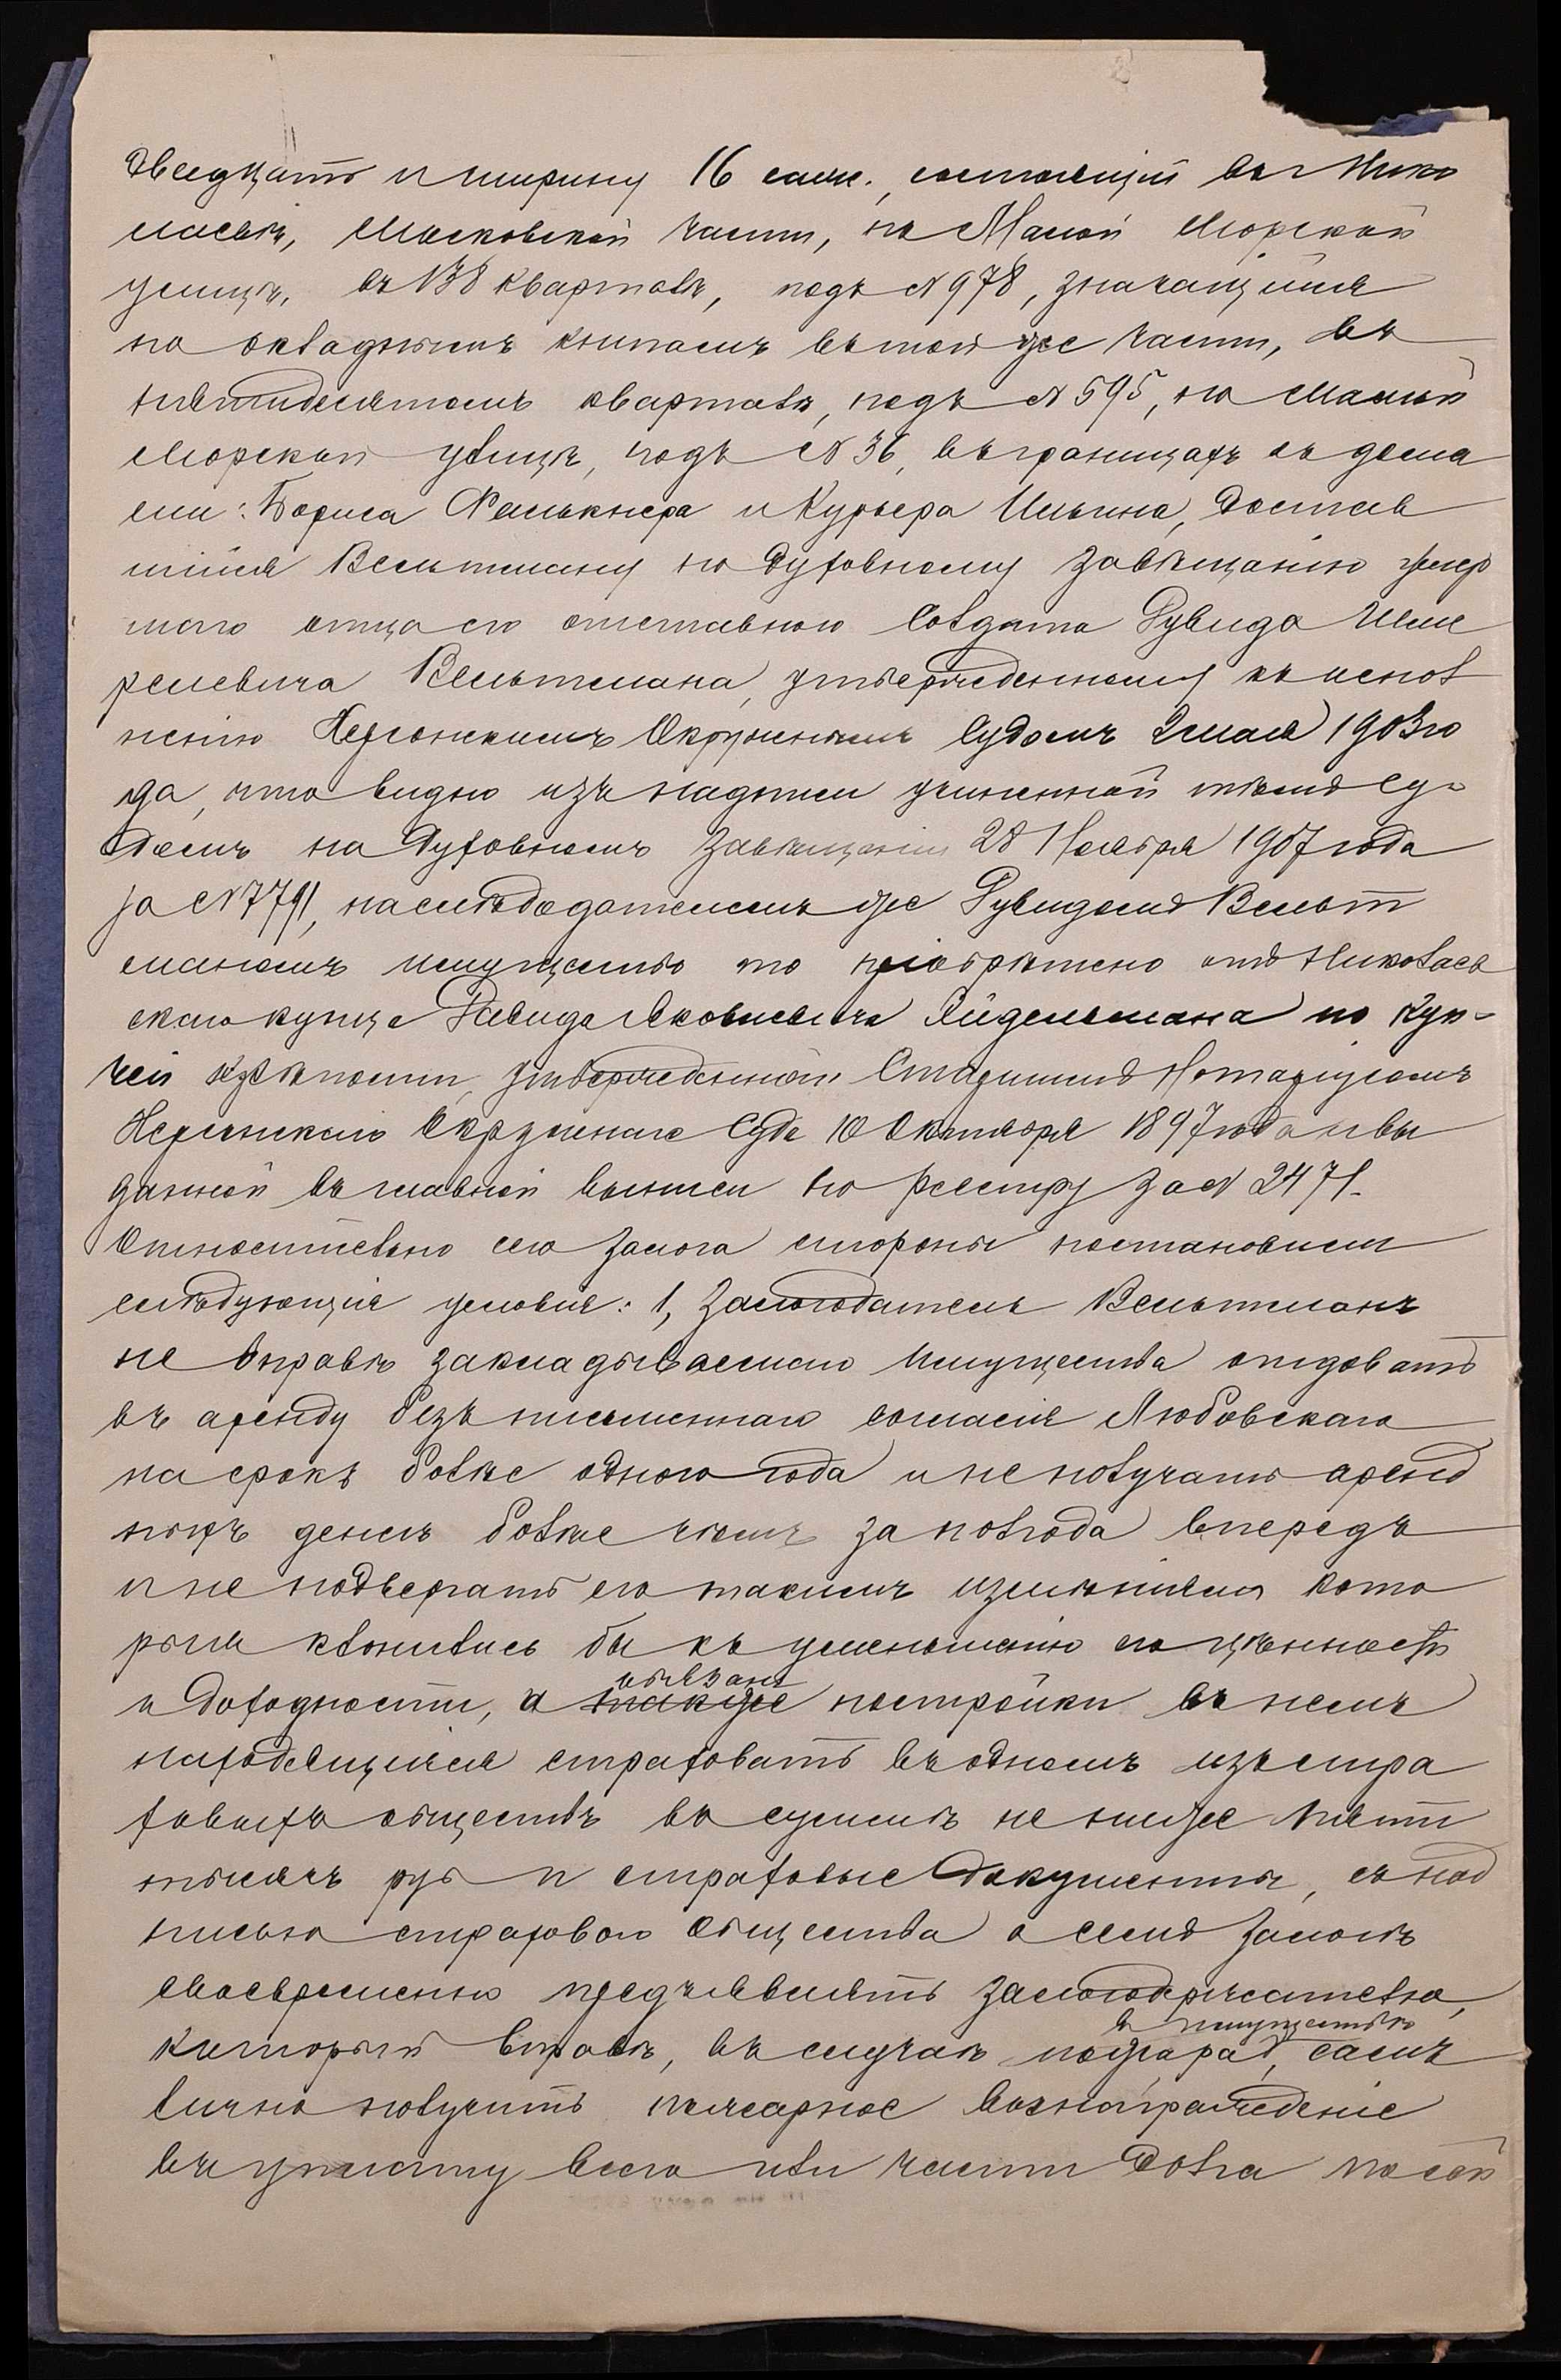 двадцать и ширину 16 саж., состоящій въ Нико
лаевѣ, Московской части, на Малой Морской
улицѣ, въ 138 кварталѣ, подъ № 978, значащійся
по окладнымъ книгамъ въ той же части, въ
пятидесятомъ кварталѣ, подъ № 595, по Малой
Морской улицѣ, подъ № 36, въ границахъ съ дома
ми: Бориса Фалькнера и Курьера Ильина, достав
шійся Вельтману по духовному завѣщанію умер
шаго отца его отставного солдата Рувида Шме
релевича Вельтмана, утвержденному къ испол
ненію Херсонскимъ Окружнымъ Судомъ 2 мая 1903 го
да, что видно изъ надписи учиненной тѣмъ Су-
домъ на духовномъ завѣщаніи 28 Ноября 1907 года
за № 7791, наслѣдодателемъ же Рувидомъ Вельт
маномъ имущество то пріобрѣтено отъ Николаев
скаго купца Давида Яковлевича Эйдельмана по куп-
чей крѣпости, утвержденной Старшимъ Нотаріусомъ
Херсонскаго Окружнаго Суда 10 Октября 1897 года и вы
данной въ главной выписи по реестру за № 2471.
Относительно сего залога стороны постановили
слѣдующія условія: 1, Залогодатель Вельтманъ
не вправѣ закладываемаго имущества отдавать
въ аренду безъ письменнаго согласія Любовскаго
на срокъ болѣе одного года и не получать аренд
ныхъ денегъ болѣе чѣмъ за полгода впередъ
и не подвергать его такимъ измѣненіямъ кото
рыя клонились бы къ уменьшенію его цѣнности
и доходности, а также обязанъ постройки въ немъ
находящіяся страховать въ одномъ изъ стра
ховыхъ обществъ въ суммѣ не ниже пяти
тысячъ руб и страховые документы, съ над
писью страхового Общества о семъ залогѣ
своевременно предъявлять залогодержателю,
который вправѣ, въ случаѣ пожара въ имуществѣ, самъ
лично получить пожарное вознагражденіе
въ уплату всего или части долга по сей